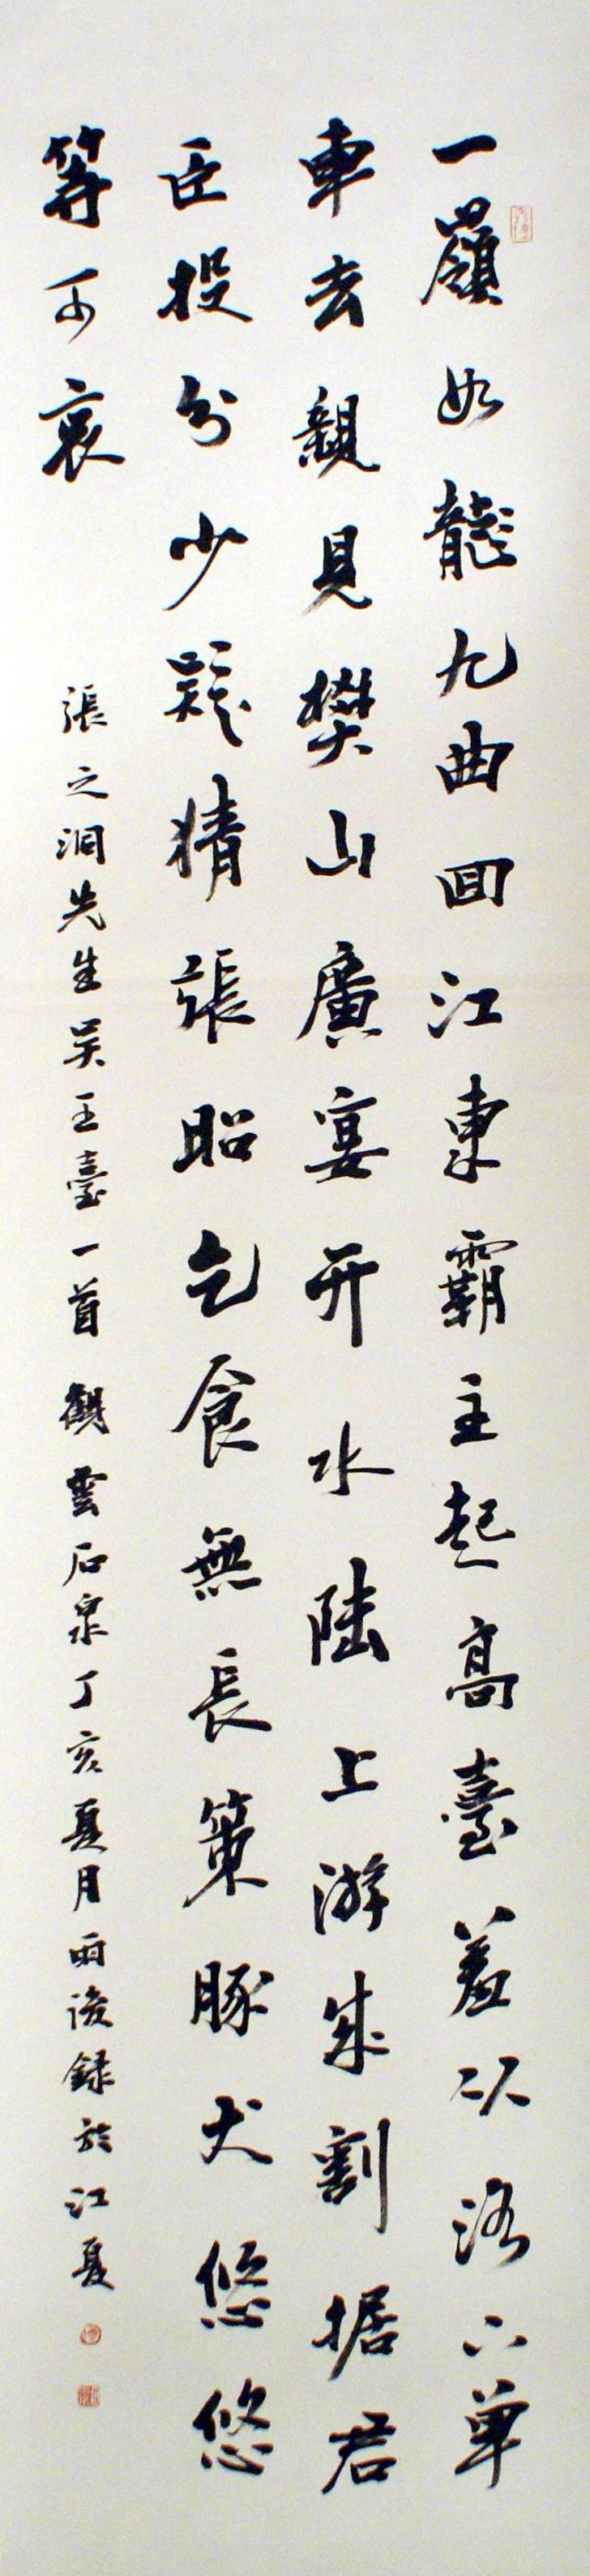 一嶺如龍九曲回江東霸主起高臺羞從洛下單
車去親見樊山廣宴開水陸上游成割據君
臣投分少疑猜張昭乞食無長策豚犬悠悠
等可哀
張之洞先生吴王臺一首 觀雲石泉丁亥夏月雨後録於江夏